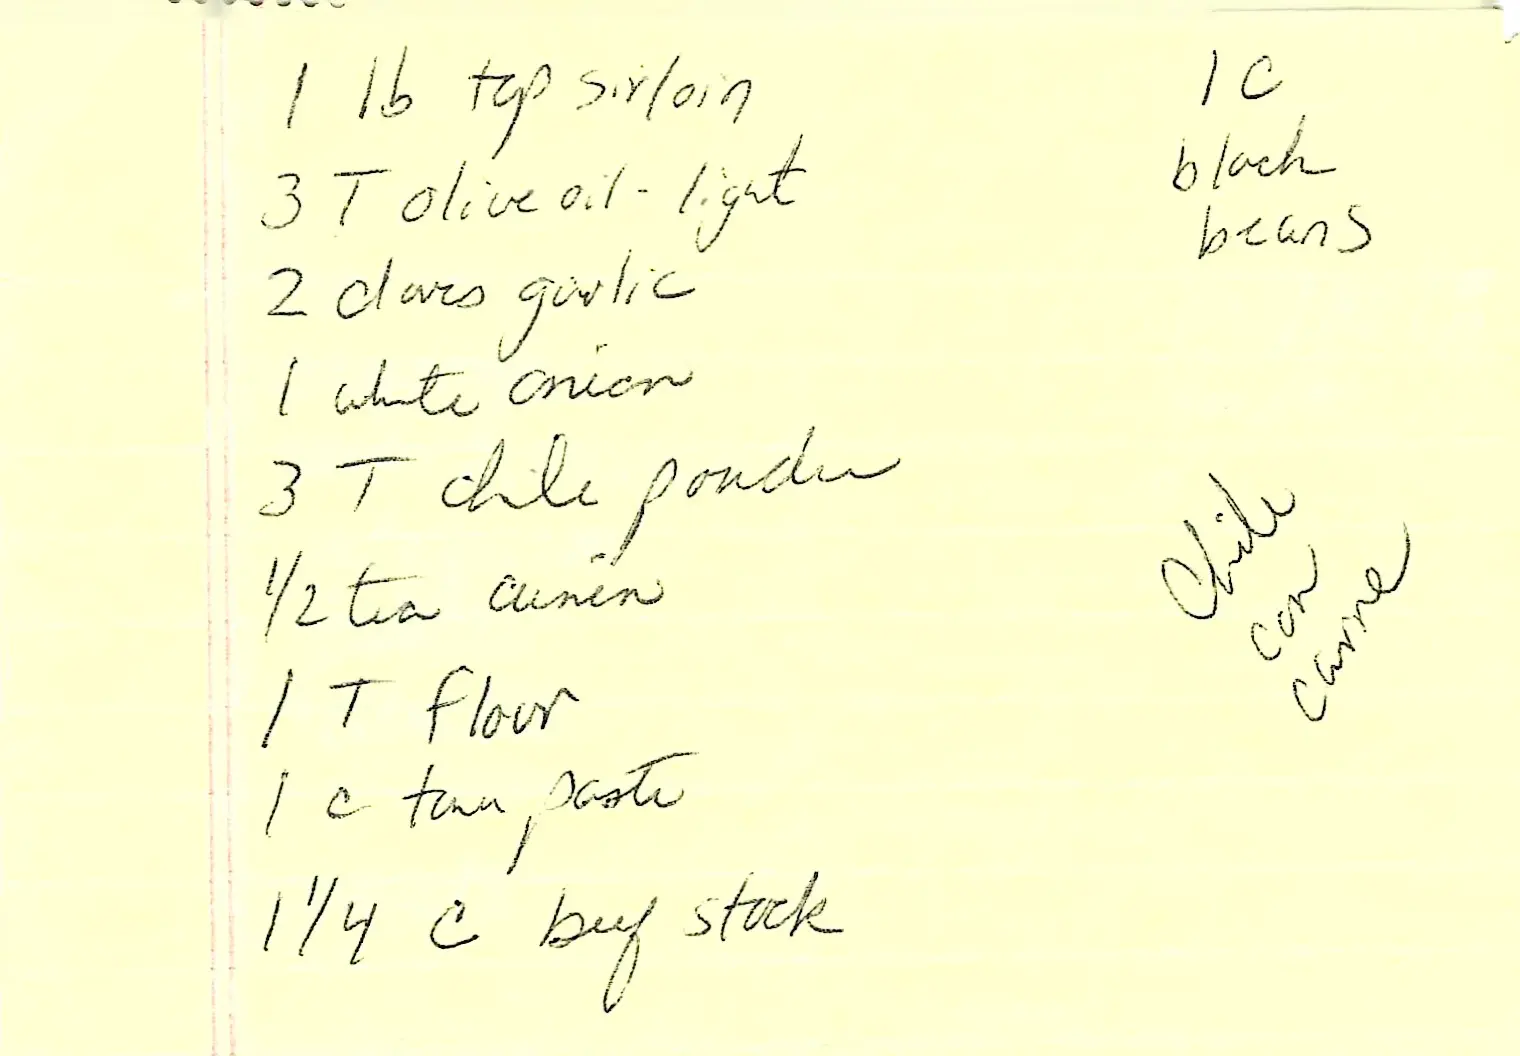 1 lb top sirloin
3 T olive oil - light
2 cloves garlic
1 white onion
3 T chile powder
1/2 tea cumin
1 T flour
1 c tom paste
1 1/4 c beef stock
1 C
black
beans
Chile
con
carne